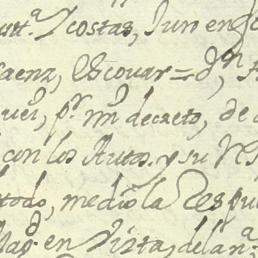 y costas, Jun en
Saenz, Escouar = d.n
p.r mi decreto, de
con los Autos. y su
todo, me dió la Respu
en Vista, de la